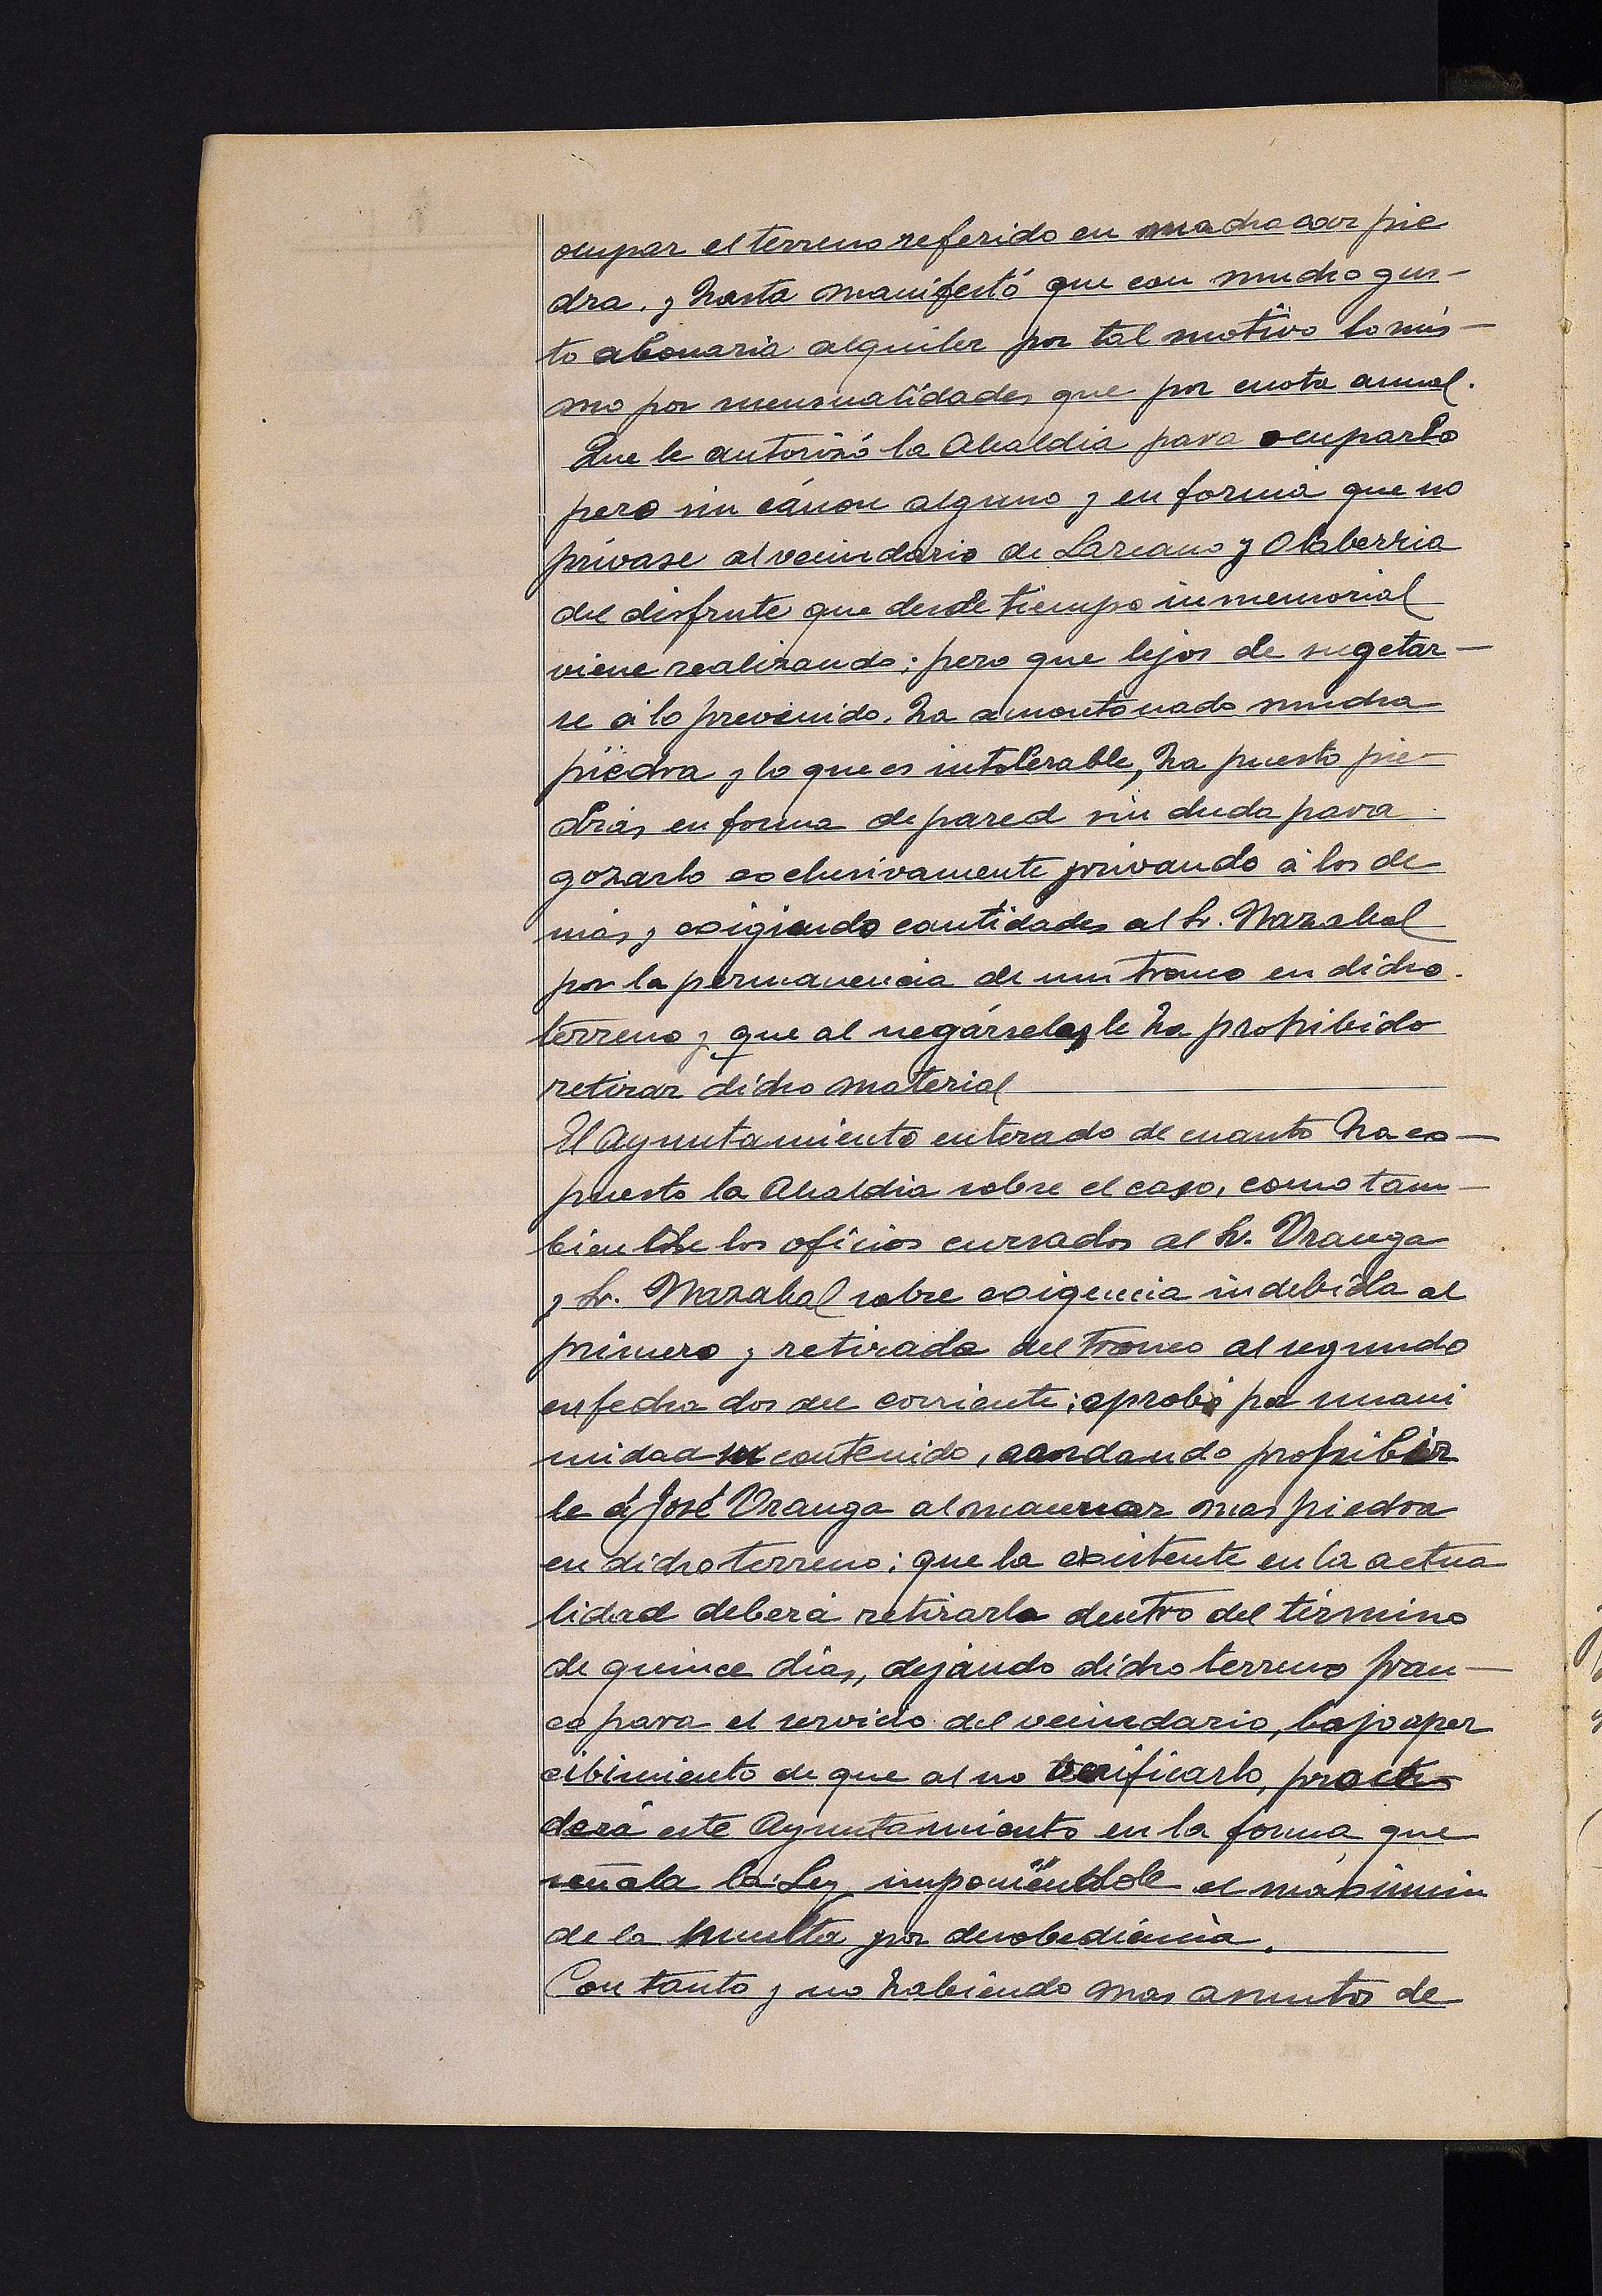 ocupar el terreno referido en machacar pie
dra, y hasta manifestó que con mucho gus-
to abonaria alquiler por tal motivo lo mis-
mo por mensualidades que por cuota anual.
Que le autorizó la Alcaldia para ocuparlo
pero sin cánon alguno y en forma que no
privase al vecindario de Lazcano y Olaberria
del disfrute que desde tiempo inmemorial
viene realizando; pero que lejos de sugetar-
se á lo prevenido, ha amontonado mucha
piedra y lo que es intolerable, ha puesto pie-
dras en forma de pared sin duda para
gozarlo exclusivamente privando á los de
más y exigiendo cantidades al Sr. Mazabal
por la permanencia de un tronco en dicho
terreno y que al negárselas le ha prohibido
retirar dicho material
El Ayuntamiento enterado de cuanto ha ex-
puesto la Alcaldia sobre el caso, como tam-
bien de los oficios cursados al Sr. Uranga
y Sr. Mazabal sobre exigencia indebida al
primero y retirada del tronco al segundo
en fecha dos del corriente; aprobó por unani
midad su contenido, acordando prohibir
le á José Uranga almacenar mas piedra
en dicho terreno; que la existente en la actua
lidad deberá retirarla dentro del término
de quince dias, dejando dicho terreno fran-
co para el servicio del vecindario, bajo aper
cibimiento de que al no verificarlo, proce-
derá este Ayuntamiento en la forma que
señala la Ley imponiéndole el máximun
de la multa por desobediencia.
Con tanto y no habiendo mas asuntos de